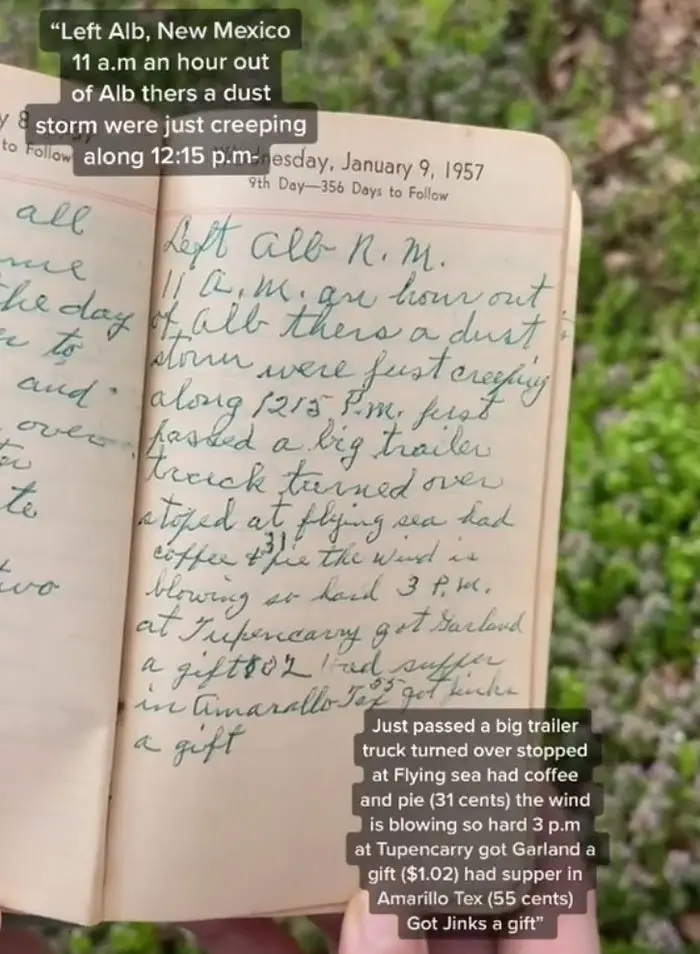 “Left Alb, New Mexico
11 a.m an hour out
of Alb thers a dust
storm were just creeping
along 12:15 p.m-
y 8
to Follow
Wednesday, January 9, 1957
9th Day—356 Days to Follow
all
me
the day
to
and
over
te
two
Left Alb N. M.
11 A. M. an hour out
of Alb thers a dust
storm were just creeping
along 1215 P.m. just
passed a big trailer
truck turned over
stoped at flying sea had
coffee & pie 31 the wind is
blowing so hard 3 P. M.
at Tupencarry got Garland
a gift had supper
in Amarallo Tex 55 got Jinks
a gift
Just passed a big trailer
truck turned over stopped
at Flying sea had coffee
and pie (31 cents) the wind
is blowing so hard 3 p.m
at Tupencarry got Garland a
gift ($1.02) had supper in
Amarillo Tex (55 cents)
Got Jinks a gift”